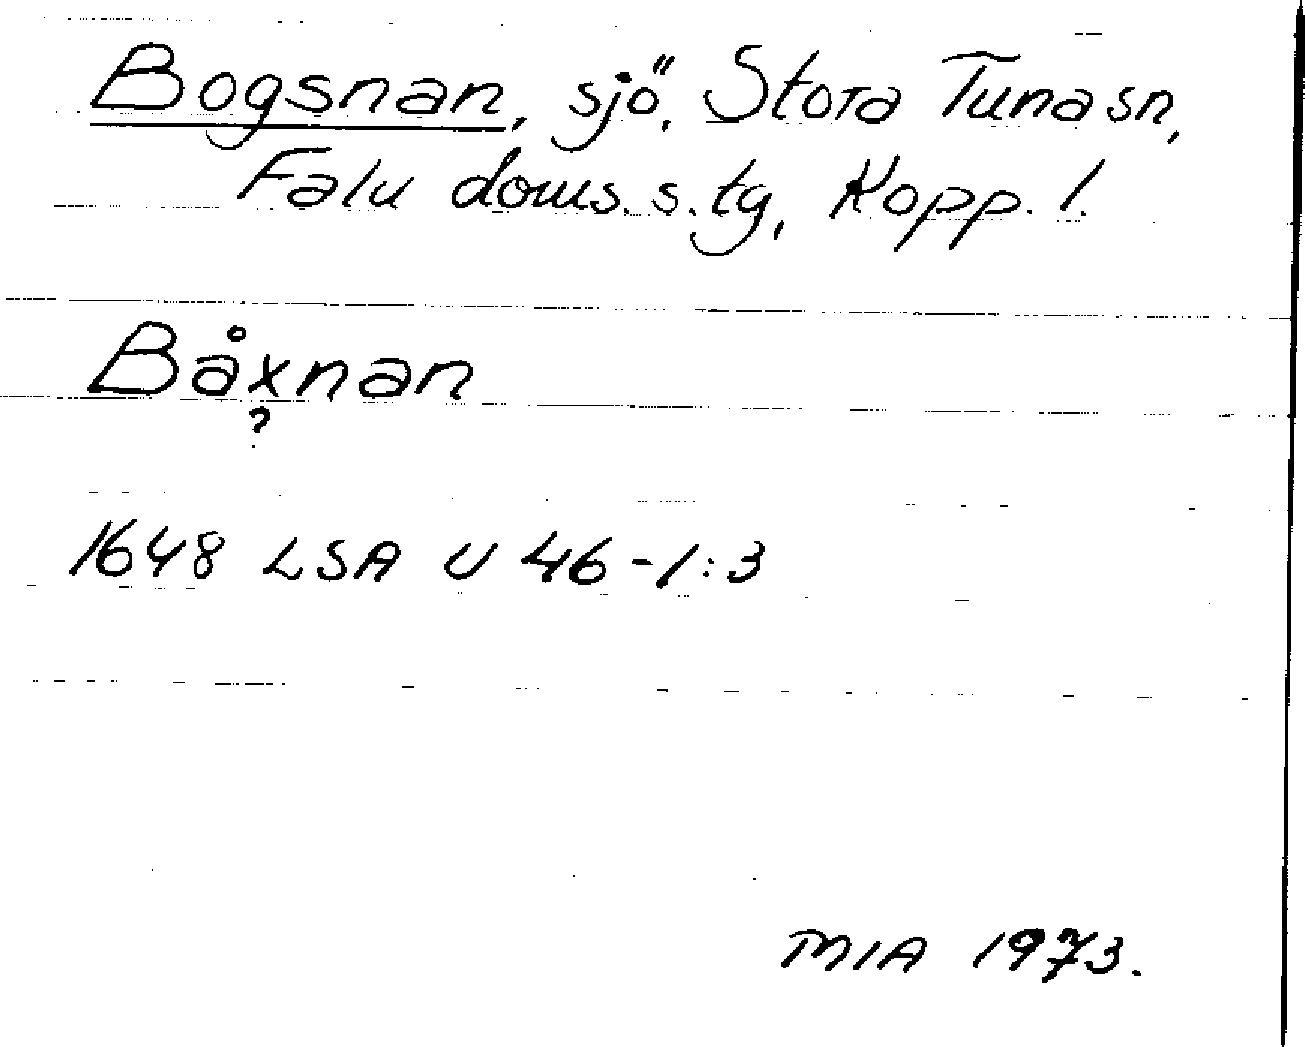 Bogsnan, sjö, Stora Tuna sn,
Falu doms. s. tg, Kopp. l.
Båxnan
?
1648 LSA U 46-1:3
MIA 1973.